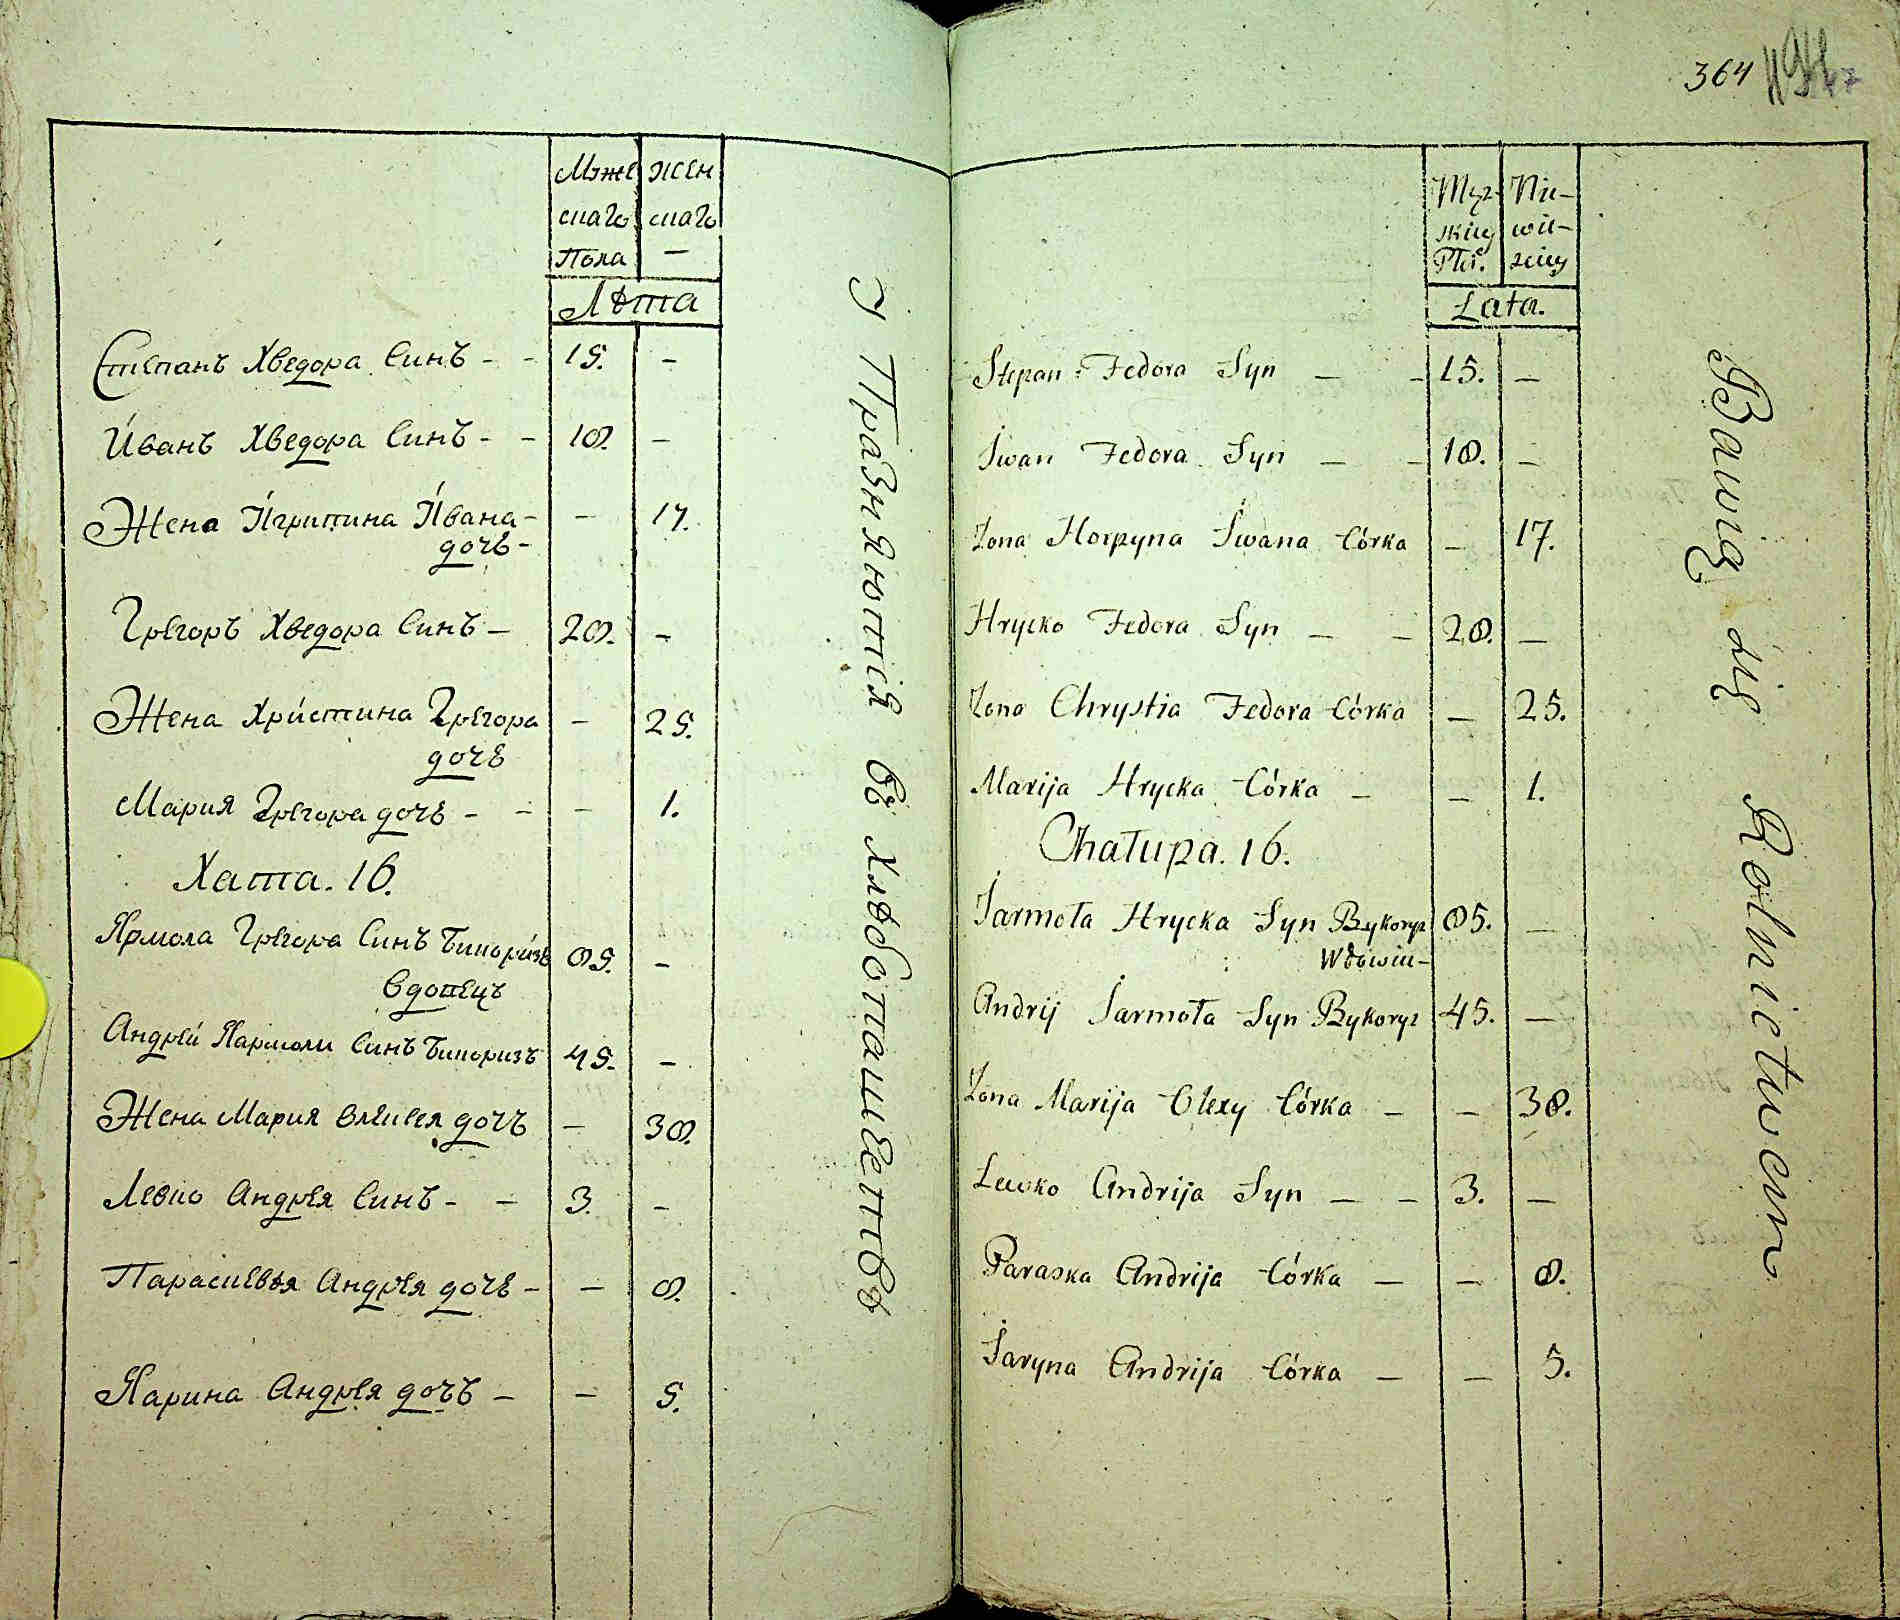 Мэже
скаго
Пола
жен
скаго
—
Лѣта
Степанъ Хведора Синъ - - 15. -
Иванъ Хведора Синъ - - 18. -
Жена Игрипина Ивана - - 17.
дочь -
Грегоръ Хведора Синъ - 28. -
Жена Християна Грегора - 25.
дочь
Мария Грегора дочь - - - 1.
Хата. 16.
Ярмола Грегора Синъ Бикоризъ 85. -
вдовецъ
Андрей Яармоли Синъ Бикоризъ 45. -
Жена Мария Олексея дочъ - 38.
Левко Андрея Синъ - - 3. -
Параскевья Андрея дочь - - 8.
Ярина Андрея дочъ - - 5.
У Празняютіся въ хлѣбопашествѣ
364
Męz-
skiey
Płci.
Nie-
wie-
sciey
Lata.
Stepan Fedora Syn — - 15. —
Iwan Fedora Syn — - 18. —
Zona Horpyna Iwana Córka — 17.
Hrycko Fedora Syn — — 28. —
Zona Chrystia Fedora Córka — 25.
Marija Hrycka Córka — — 1.
Chałupa. 16.
Jarmoła Hrycka Syn Bykoryz 85. —
Wdowiec -
Andrij Jarmoła Syn Bykoryz 45. —
Zona Marija Olexy Córka — - 38.
Lewko Andrija Syn — — 3. —
Paraska Andrija Córka — - 8.
Jaryna Andrija Córka — — 5.
Bawią się Rolnictwem